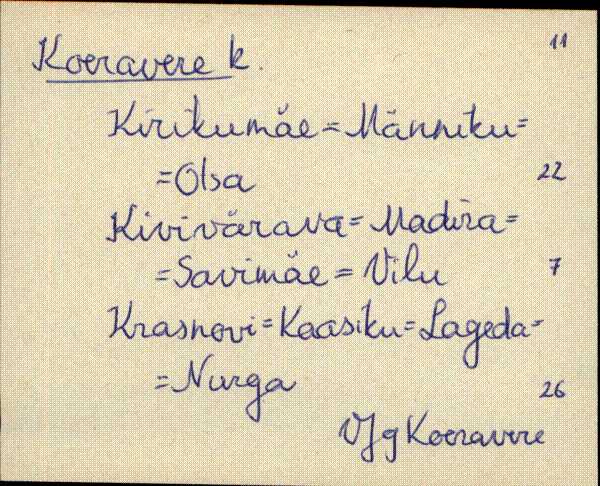 Koeravere k. 11
Kirikumäe = Männiku =
= Olsa 22
Kivivärava = Madira =
= Savimäe = Vilu 7
Krasnovi = Kaasiku = Lageda =
= Nurga 26
VJg Koeravere